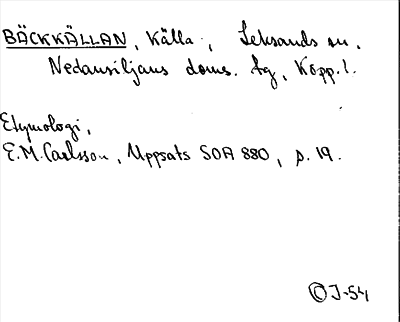 BÄCKKÄLLAN, källa, Leksands sn.
Nedansiljans doms. fg, Kopp.l.
Etymologi,
E.M. Carlsson, Uppsats SOA 880, s. 19.
© J-54